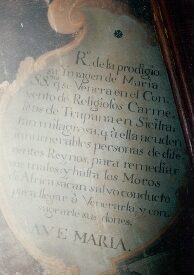 Rº. de la prodigio
sa Imagen de Maria
SS. que se Venera en el Con
vento de Religiosos Carme
litas de Trapana en Sicilia,
tan milagrosa, q̃ a ella acuden
innumerables personas de dife
rentes Reynos, para remediar
sus males, y hasta los Moros
de Africa sacan salvo conducto
para llegar â Venerarla, y con
sagrarle sus dones.
AVE MARIA.